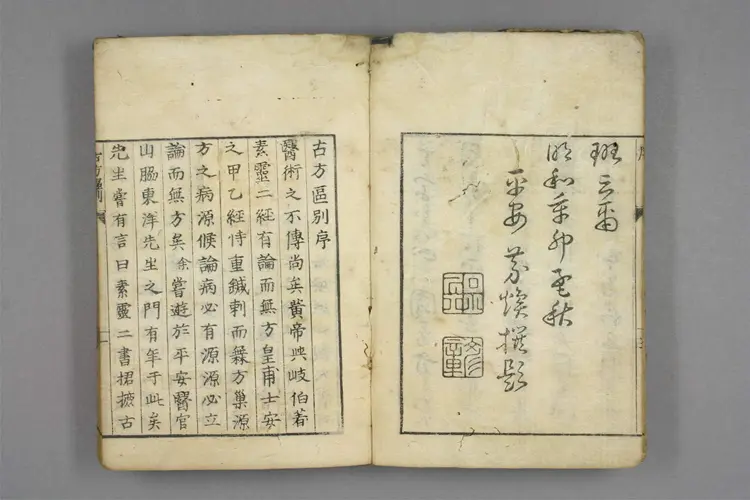 班云爾
明和辛卯孟秋
平安 芥煥撰題
古方區別序
醫術之不傳尚矣黃帝與岐伯著
素靈二經有論而無方皇甫士安
之甲乙經恃重鍼刺而無方巢源
方之病源候論病必有源源必立
論而無方矣余嘗遊於平安醫官
山脇東洋先生之門有年于此矣
先生嘗有言曰素靈二書捃摭古
古方區別